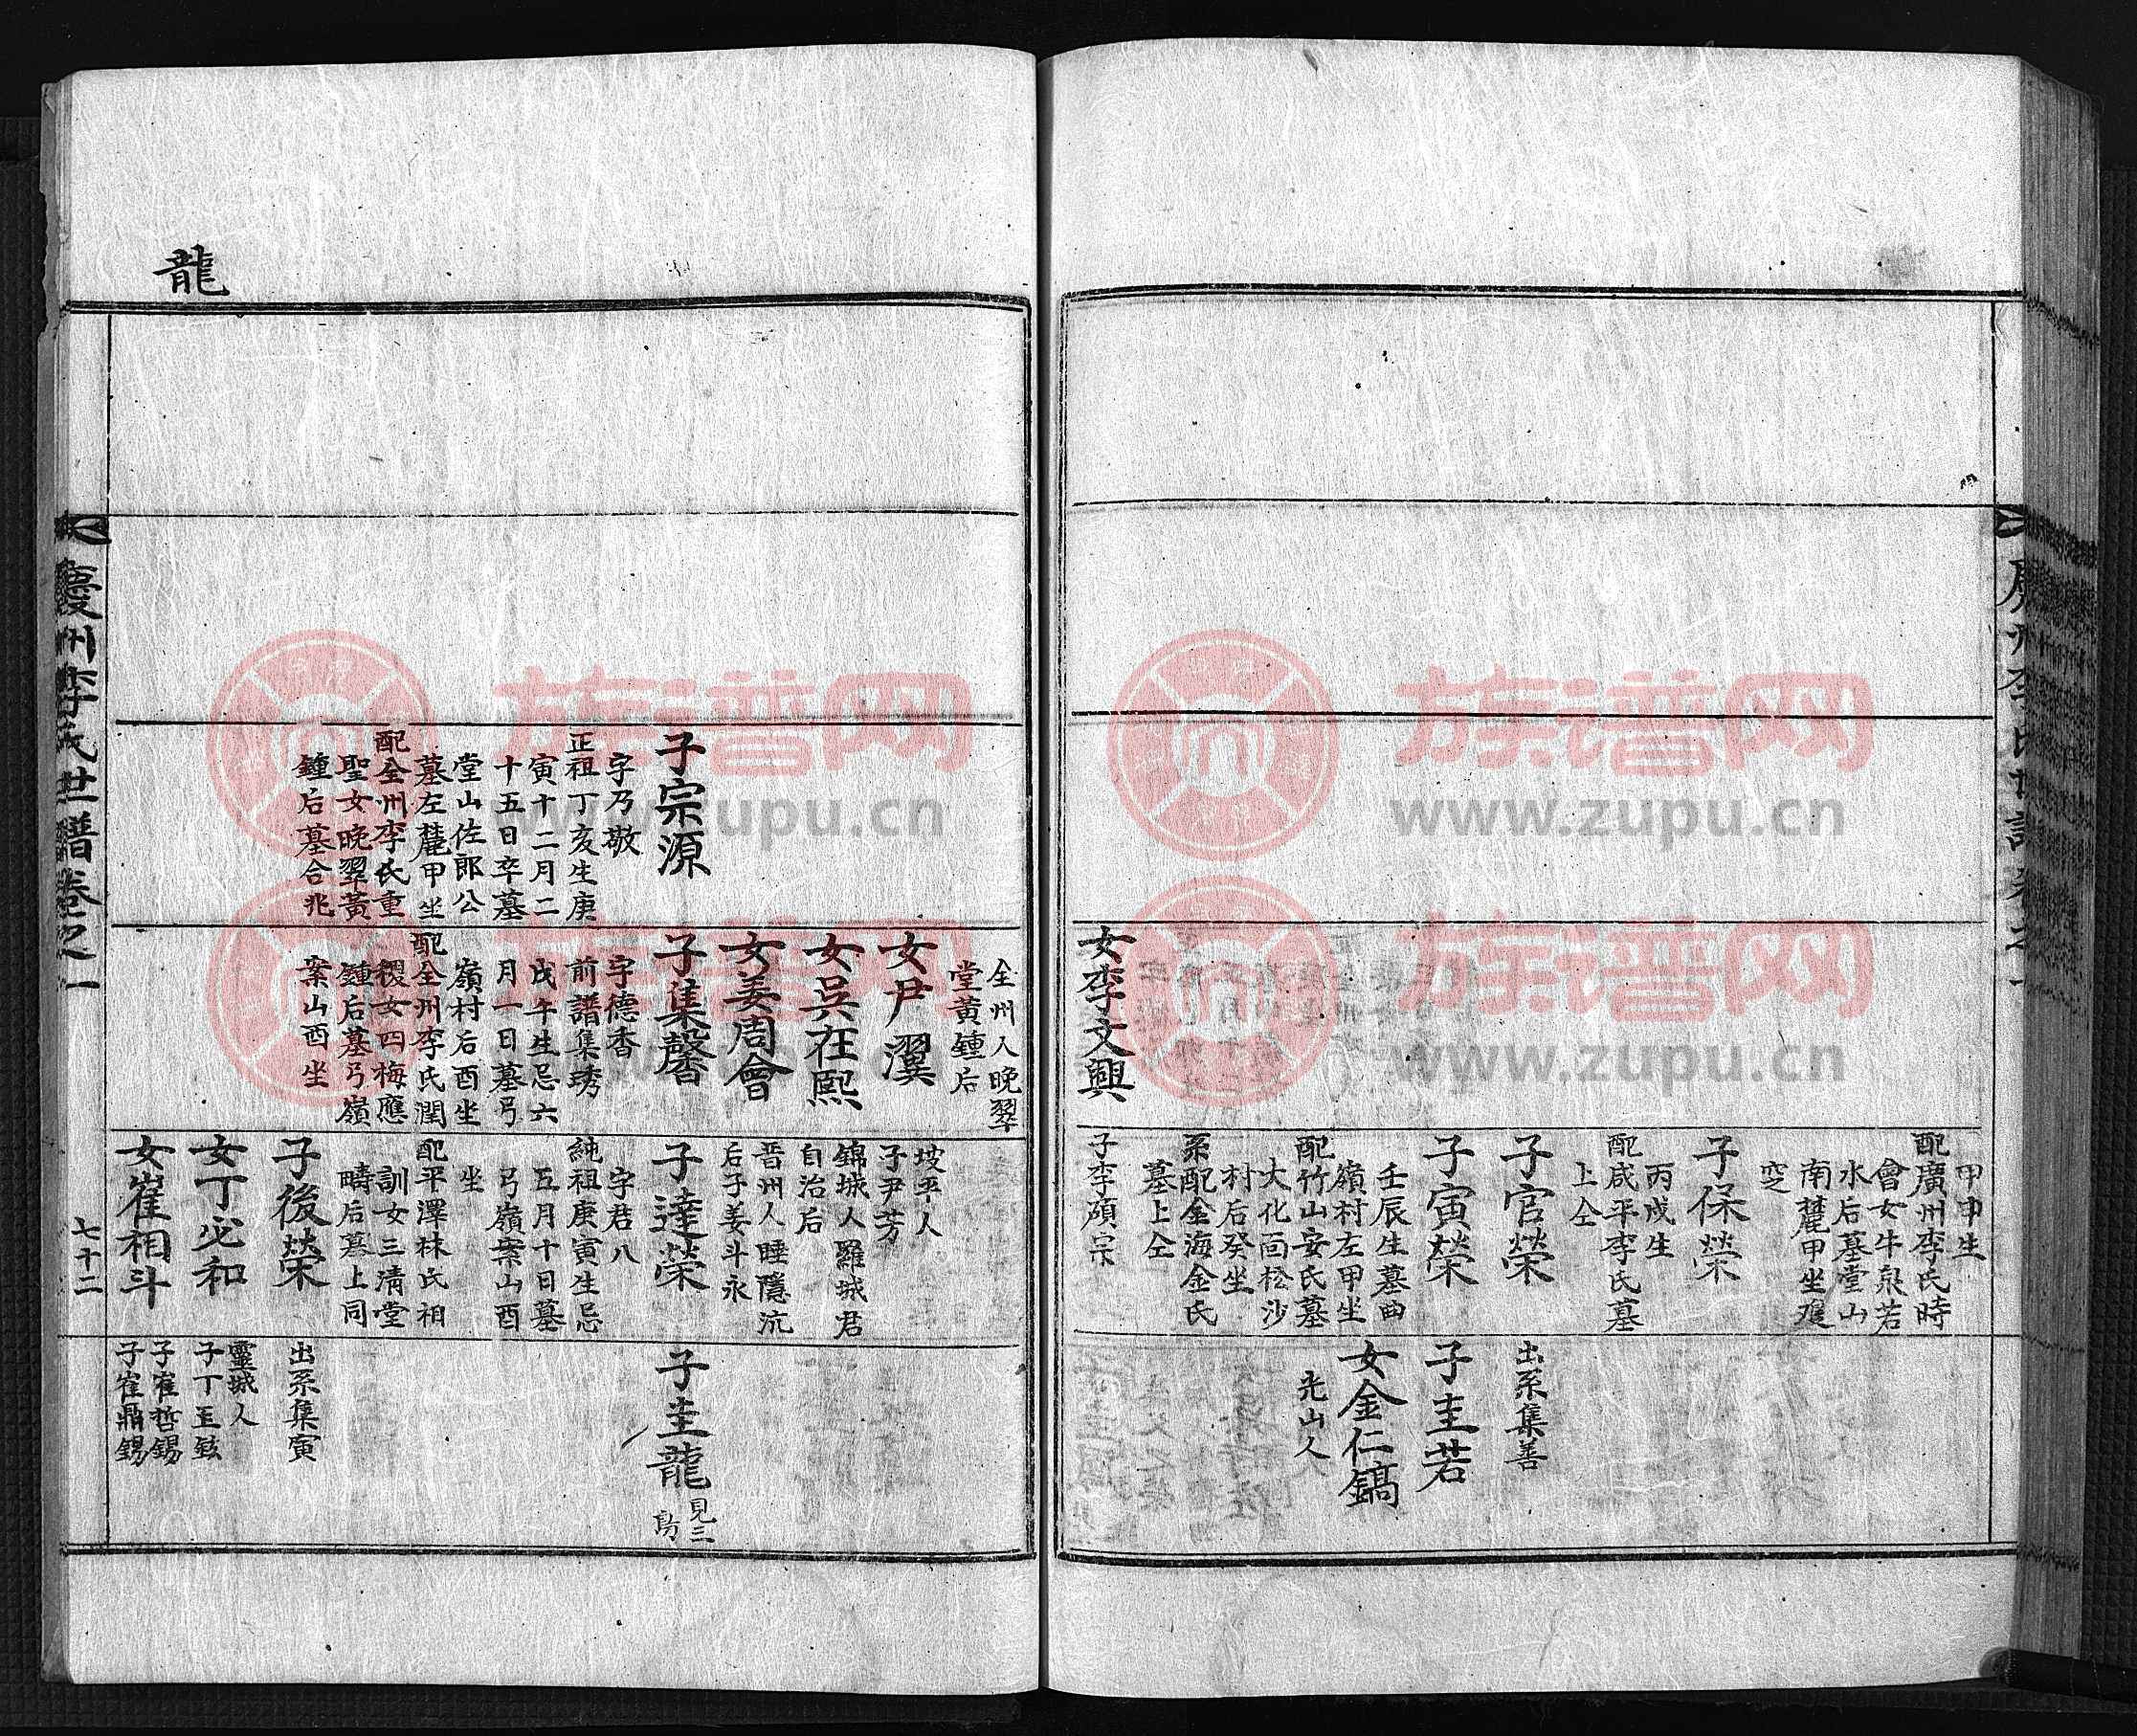 女李文興
甲申生
配廣州李氏時
會女牛泉若
水后墓堂山
南麓甲坐雙
窆
子保榮
丙戌生
配咸平李氏墓
上仝
子官榮
子寅榮
壬辰生墓曲
嶺村左甲坐
配竹山安氏墓
大化面松沙
村后癸坐
系配金海金氏
墓上仝
子李碩宗
出系集善
子圭若
女金仁鎬
光山人
龍
子宗源
字乃敬
正祖丁亥生庚
寅十二月二
十五日卒墓
堂山佐郎公
墓左麓甲坐
配全州李氏重
聖女晚翠黃
鍾后墓合兆
全州人晚翠
堂黃鍾后
女尹瀷
女吳在熙
女姜周會
子集馨
字德香
前譜集琇
戊午生忌六
月一日墓弓
嶺村后酉坐
配全州李氏潤
稷女四梅應
鍾后墓弓嶺
案山酉坐
坡平人
子尹芳
錦城人羅城君
自治后
晋州人睡隱沆
后子姜斗永
子達榮
字君八
純祖庚寅生忌
五月十日墓
弓嶺案山酉
坐
配平澤林氏相
訓女三淸堂
疇后墓上同
子後榮
女丁必和
女崔相斗
子圭龍 見三
房
出系集寅
靈城人
子丁玉鉉
子崔哲錫
子崔鼎錫
慶州李氏世譜卷之一
七十二
族谱网
www.zupu.cn
族谱网
www.zupu.cn
族谱网
www.zupu.cn
族谱网
www.zupu.cn